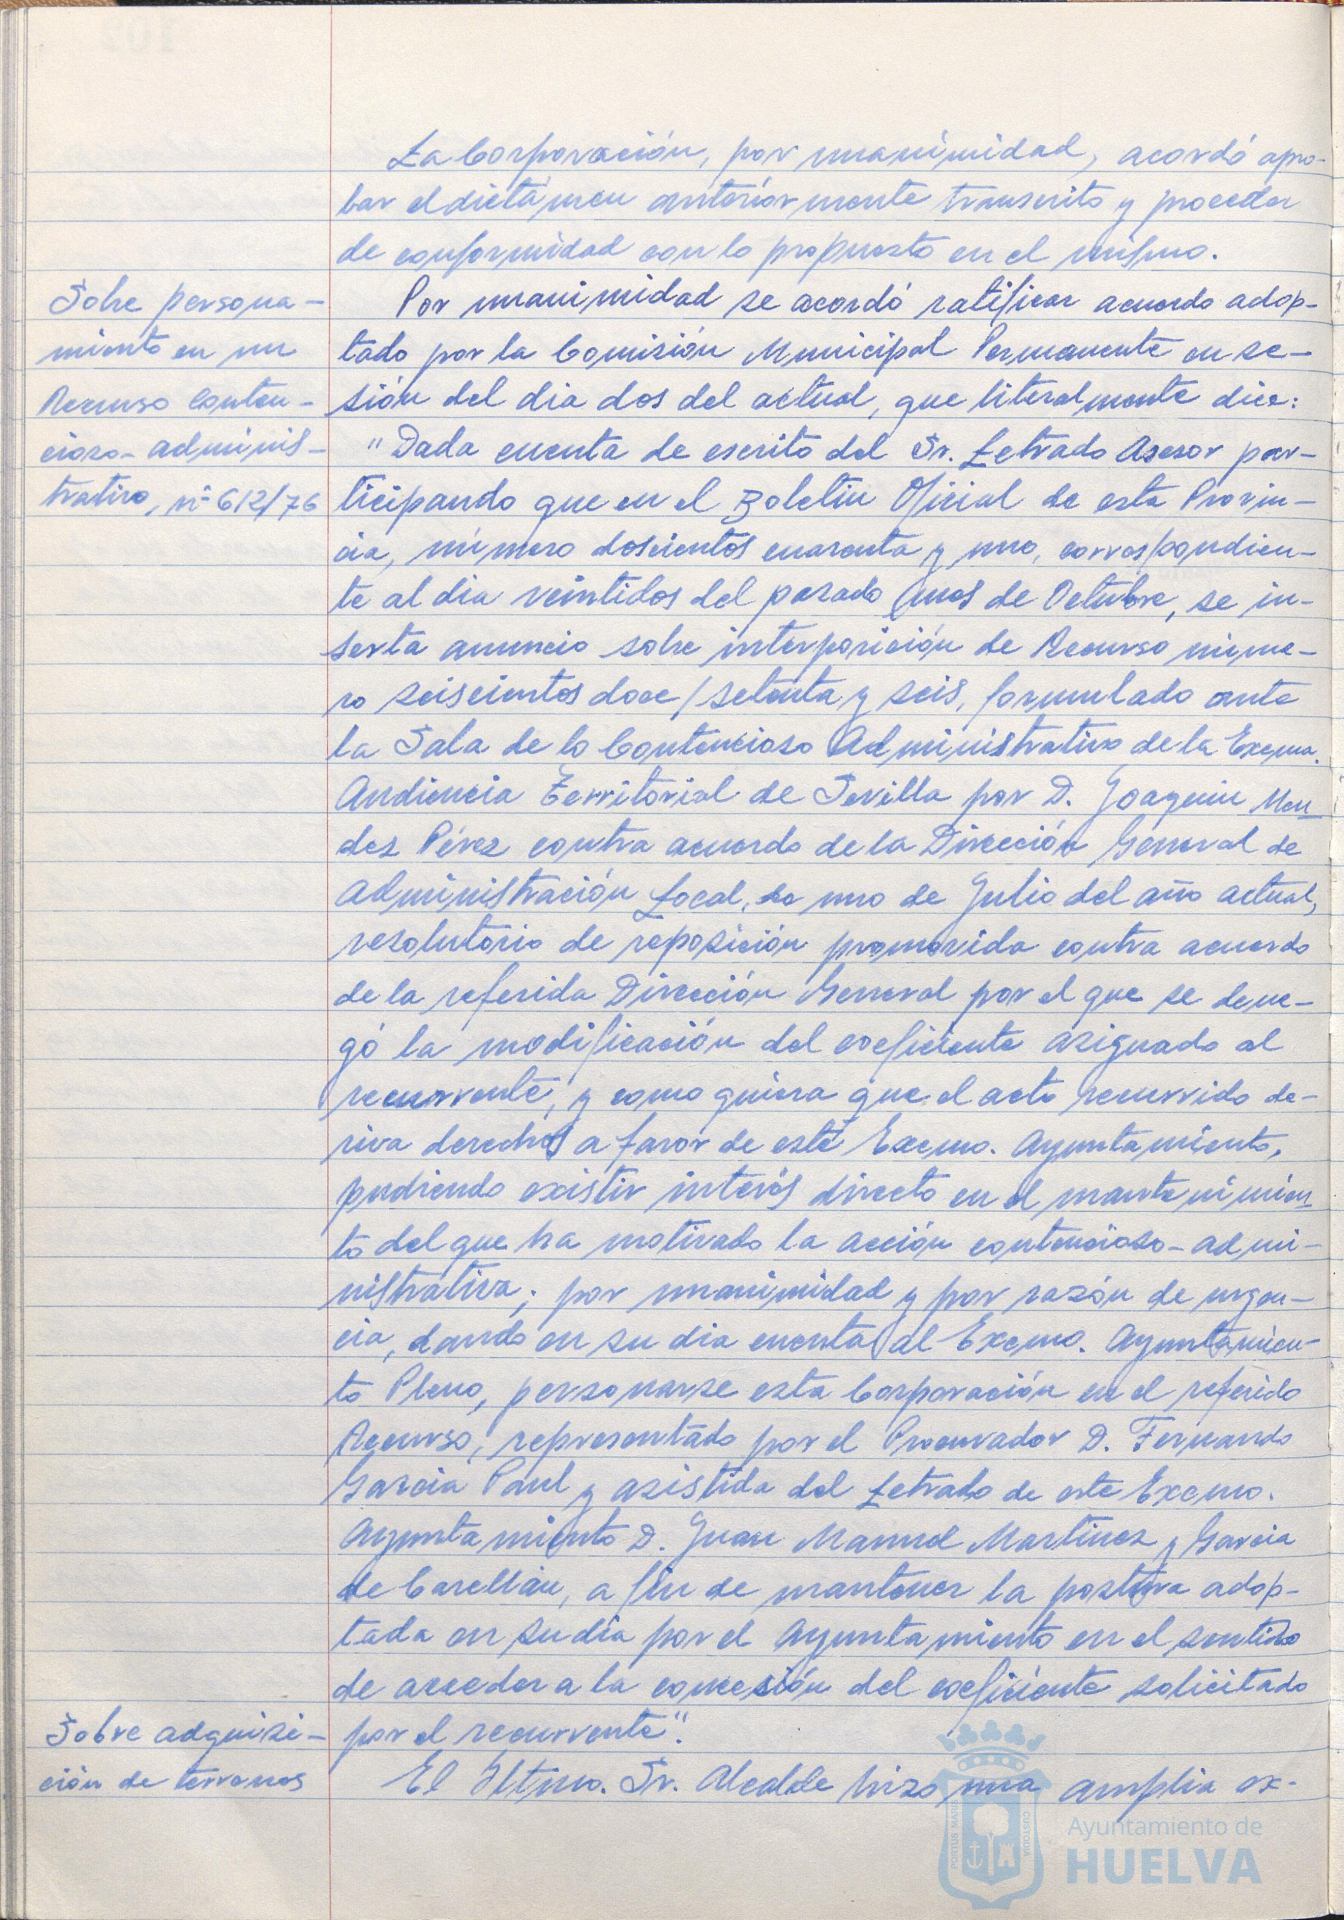 La Corporación, por unanimidad, acordó apro-
bar el dictámen anteriormente transcrito y proceder
de conformidad con lo propuesto en el mismo.
Sobre persona-
miento en un
Recurso Conten-
cioso-adminis-
trativo, nº 612/76
Por unanimidad se acordó ratificar acuerdo adop-
tado por la Comisión Municipal Permanente en se-
sión del dia dos del actual, que literalmente dice:
"Dada cuenta de escrito del Sr. Letrado Asesor par-
ticipando que en el Boletin Oficial de esta Provin-
cia, número doscientos cuarenta y uno, correspondien-
te al dia veintidos del pasado mes de Octubre, se in-
serta anuncio sobre interposición de Recurso núme-
ro seiscientos doce/setenta y seis, formulado ante
la Sala de lo Contencioso Administrativo de la Excma.
Audiencia Territorial de Sevilla por D. Joaquin Men
dez Pérez contra acuerdo de la Dirección General de
Administración Local, de uno de Julio del año actual,
resolutorio de reposición promovida contra acuerdo
de la referida Dirección General por el que se dene-
gó la modificación del coeficiente asignado al
recurrente, y como quiera que el acto recurrido de-
riva derechos a favor de este Excmo. Ayuntamiento,
pudiendo existir interés directo en el mantenimien
to del que ha motivado la acción contencioso-admi-
nistrativa; por unanimidad y por razón de urgen-
cia, dando en su dia cuenta al Excmo. Ayuntamien-
to Pleno, personarse esta Corporación en el referido
Recurso, representado por el Procurador D. Fernando
García Paul y asistida del Letrado de este Excmo.
Ayuntamiento D. Juan Manuel Martinez y Garcia
de Casellan, a fin de mantener la postura adop-
tada en su dia por el Ayuntamiento en el sentido
de acceder a la concesión del coeficiente solicitado
por el recurrente".
Sobre adquisi-
ción de terrenos
El Iltmo. Sr. Alcalde hizo una amplia ex-
PORTUS MARIS
CUSTODIA
Ayuntamiento de
HUELVA